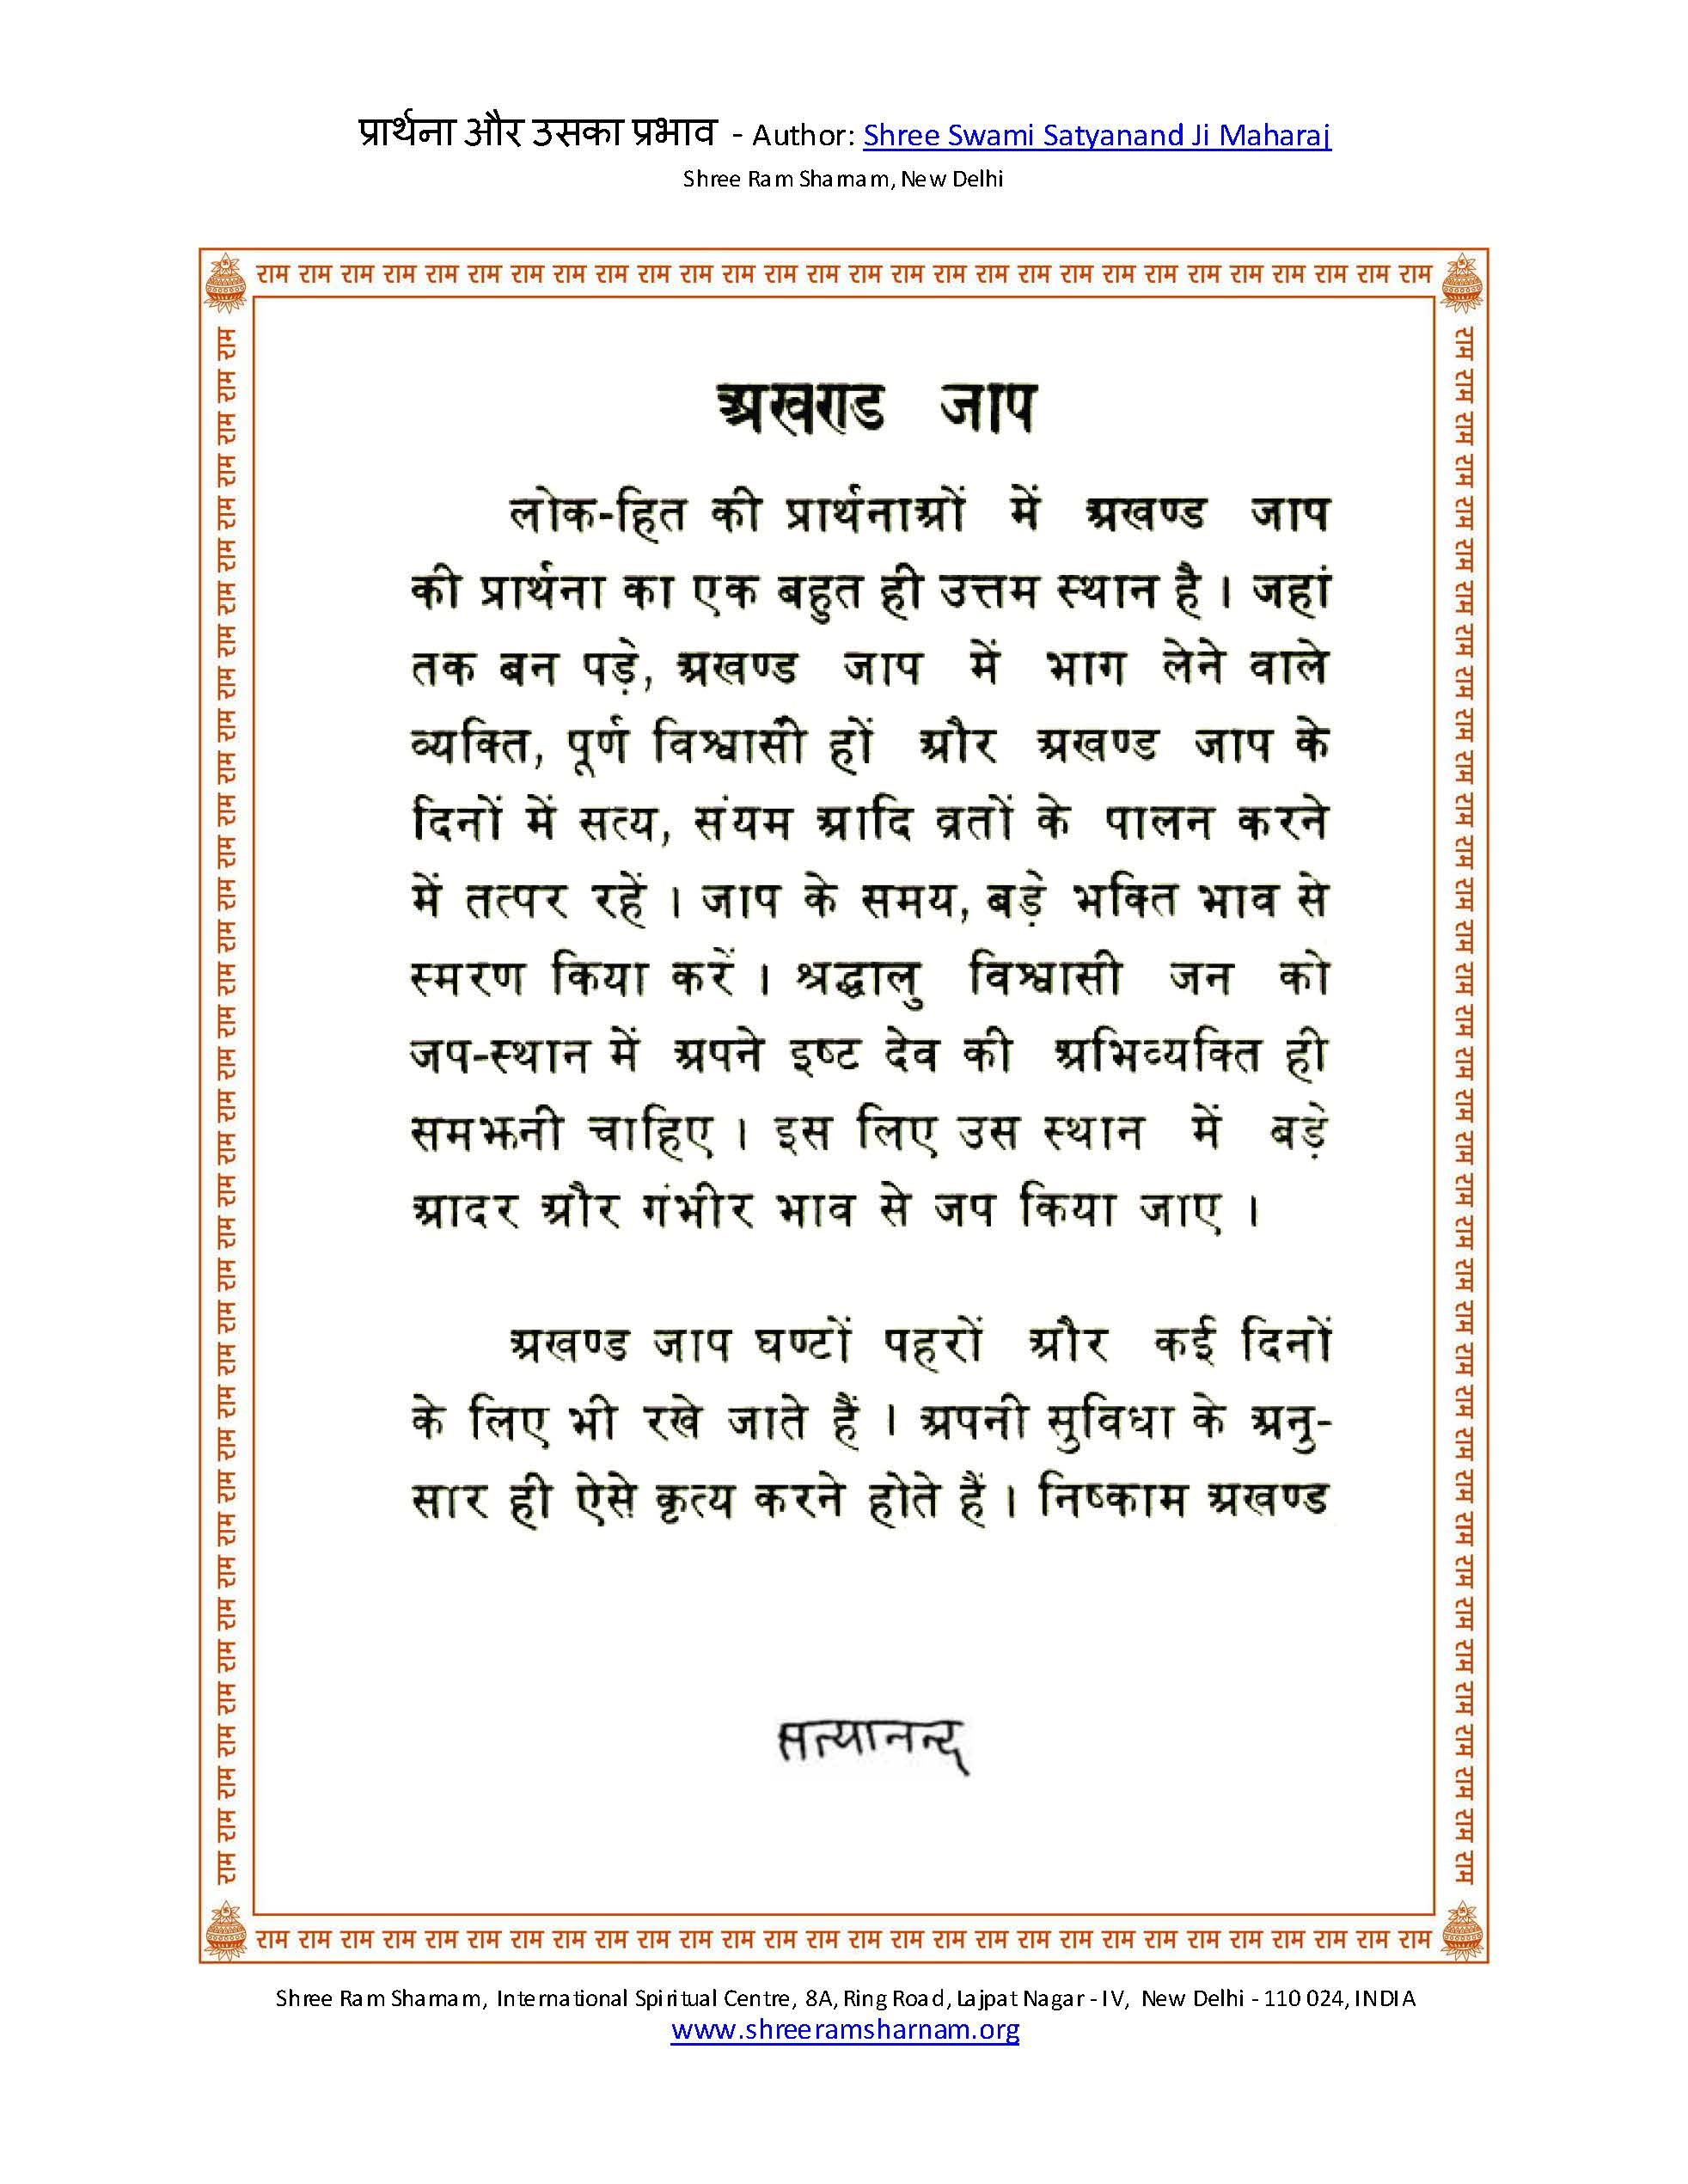 प्रार्थना और उसका प्रभाव - Author: Shree Swami Satyanand Ji Maharaj
Shree Ram Sharnam, New Delhi
राम राम राम राम राम राम राम राम राम राम राम राम राम राम राम राम राम राम राम राम राम राम राम राम राम राम राम राम
अखण्ड जाप
लोक-हित की प्रार्थनाओं में अखण्ड जाप
की प्रार्थना का एक बहुत ही उत्तम स्थान है । जहां
तक बन पड़े, अखण्ड जाप में भाग लेने वाले
व्यक्ति, पूर्ण विश्वासी हों और अखण्ड जाप के
दिनों में सत्य, संयम आदि व्रतों के पालन करने
में तत्पर रहें । जाप के समय, बड़े भक्ति भाव से
स्मरण किया करें । श्रद्धालु विश्वासी जन को
जप-स्थान में अपने इष्ट देव की अभिव्यक्ति ही
समझनी चाहिए । इस लिए उस स्थान में बड़े
आदर और गंभीर भाव से जप किया जाए ।
अखण्ड जाप घण्टों पहरों और कई दिनों
के लिए भी रखे जाते हैं । अपनी सुविधा के अनु-
सार ही ऐसे कृत्य करने होते हैं । निष्काम अखण्ड
सत्यानन्द
राम राम राम राम राम राम राम राम राम राम राम राम राम राम राम राम राम राम राम राम राम राम राम राम राम राम राम राम
राम राम राम राम राम राम राम राम राम राम राम राम राम राम राम राम राम राम राम राम राम राम राम राम राम राम राम राम राम राम राम राम राम राम राम राम राम
राम राम राम राम राम राम राम राम राम राम राम राम राम राम राम राम राम राम राम राम राम राम राम राम राम राम राम राम राम राम राम राम राम राम राम राम राम
Shree Ram Sharnam, International Spiritual Centre, 8A, Ring Road, Lajpat Nagar - IV, New Delhi - 110 024, INDIA
www.shreeramsharnam.org